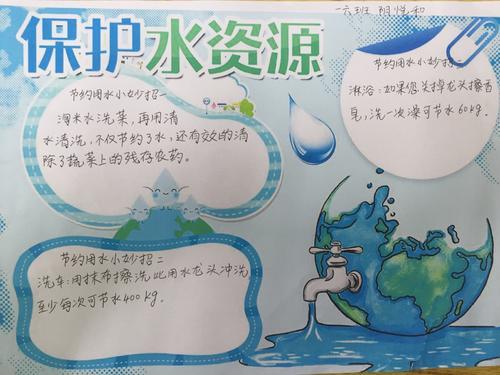 一六班 阴悦和
保护水资源
节约用水小妙招一
淘米水洗菜，再用清
水清洗，不仅节约了水，还有效的清
除了蔬菜上的残存农药。
节约用水小妙招二
洗车：用抹布擦洗比用水龙头冲洗
至少每次可节水400kg．
节约用水小妙招三
淋浴：如果您关掉龙头擦香
皂，洗一次澡可节水60kg．